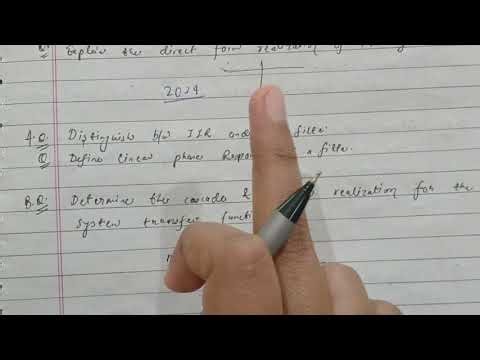 Q. Explain the direct form realization of
2024
A.Q. Distinguish b/w IIR and filter.
Q. Define linear phase Respon a filter.
B.Q. Determine the cascade & realization for the
system transfer functi